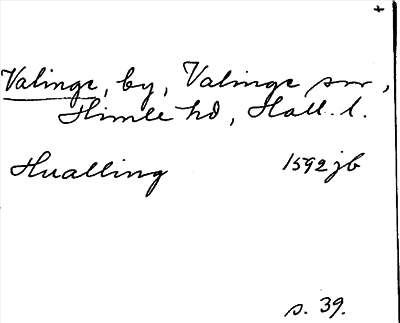 +
Valinge, by, Valinge sn,
Himle hd, Hall. l.
Hualling 1592 jb
s. 39.